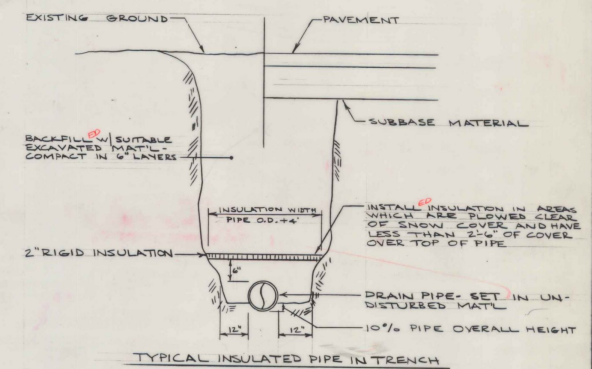 EXISTING GROUND
PAVEMENT
SUBBASE MATERIAL
BACKFILL ED W/ SUITABLE
EXCAVATED MAT'L -
COMPACT IN 6" LAYERS
INSULATION WIDTH
PIPE O.D. + 4'
INSTALL ED INSULATION IN AREAS
WHICH ARE PLOWED CLEAR
OF SNOW COVER AND HAVE
LESS THAN 2'-6" OF COVER
OVER TOP OF PIPE
2" RIGID INSULATION
6"
DRAIN PIPE - SET IN UN-
DISTURBED MAT'L
10% PIPE OVERALL HEIGHT
12"
12"
TYPICAL INSULATED PIPE IN TRENCH